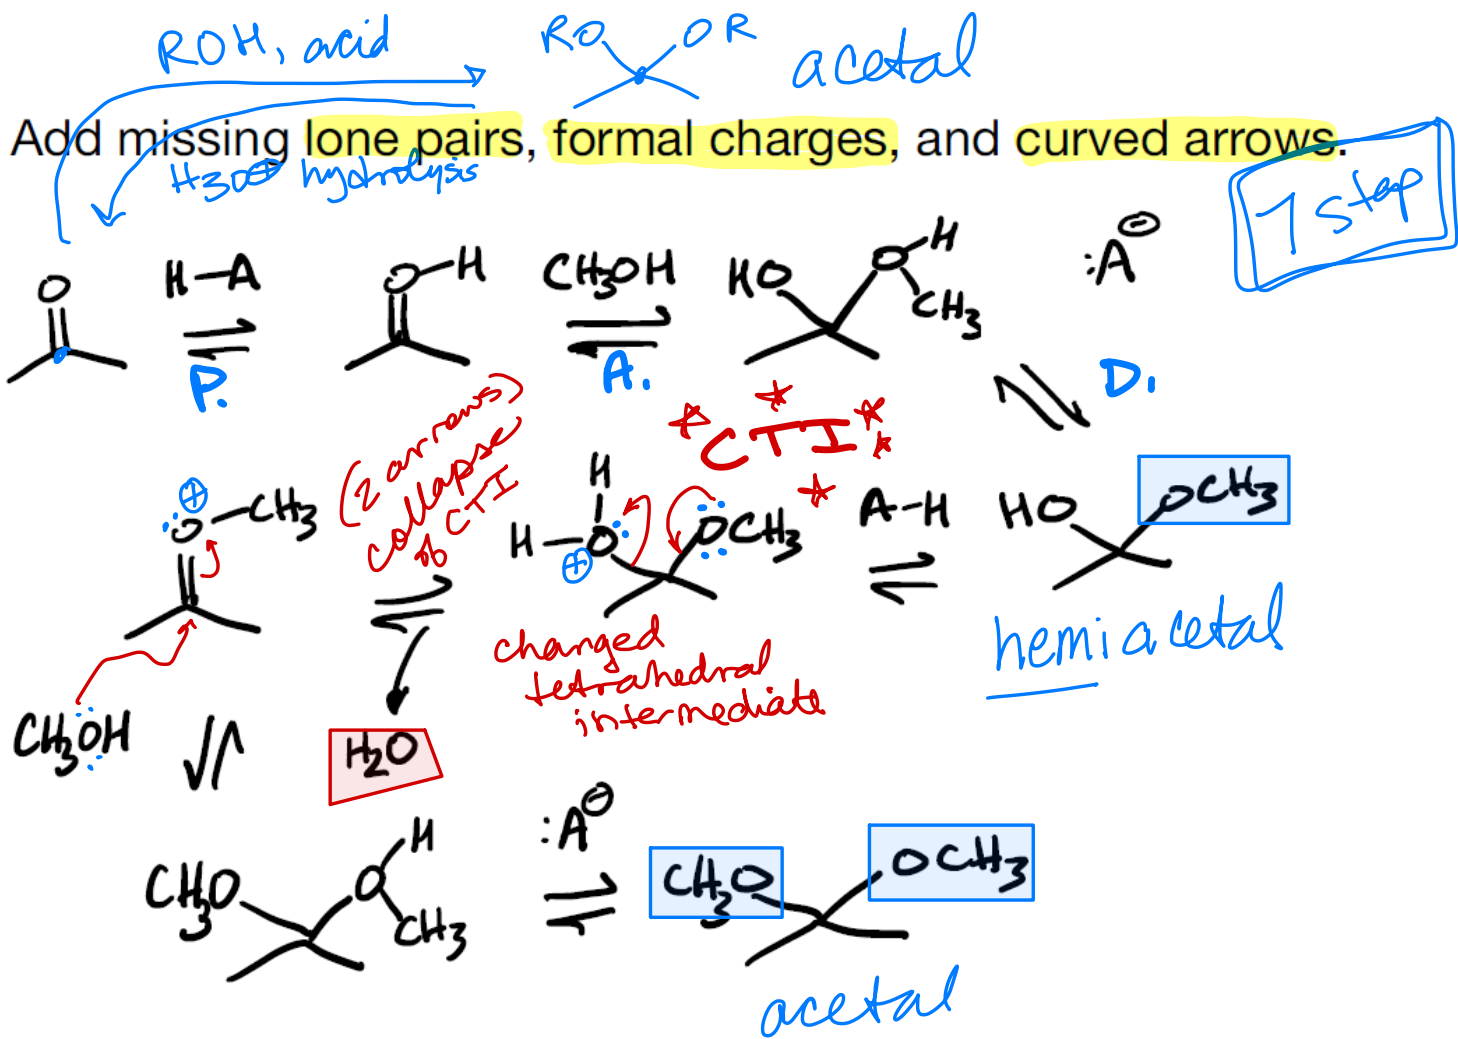 ROH, acid
RO OR acetal
Add missing lone pairs, formal charges, and curved arrows.
H3O⊕ hydrolysis
1 step
O H–A O–H CH3OH HO O–H CH3 :A⊖
P. A. D.
(2 arrows)
collapse
of CTI
CTI
⊕ :O–CH3
H H–O: ⊕ OCH3 A–H HO OCH3
hemiacetal
changed
tetrahedral
intermediate
CH3OH H2O
CH3O O H CH3 :A⊖ CH3O OCH3
acetal